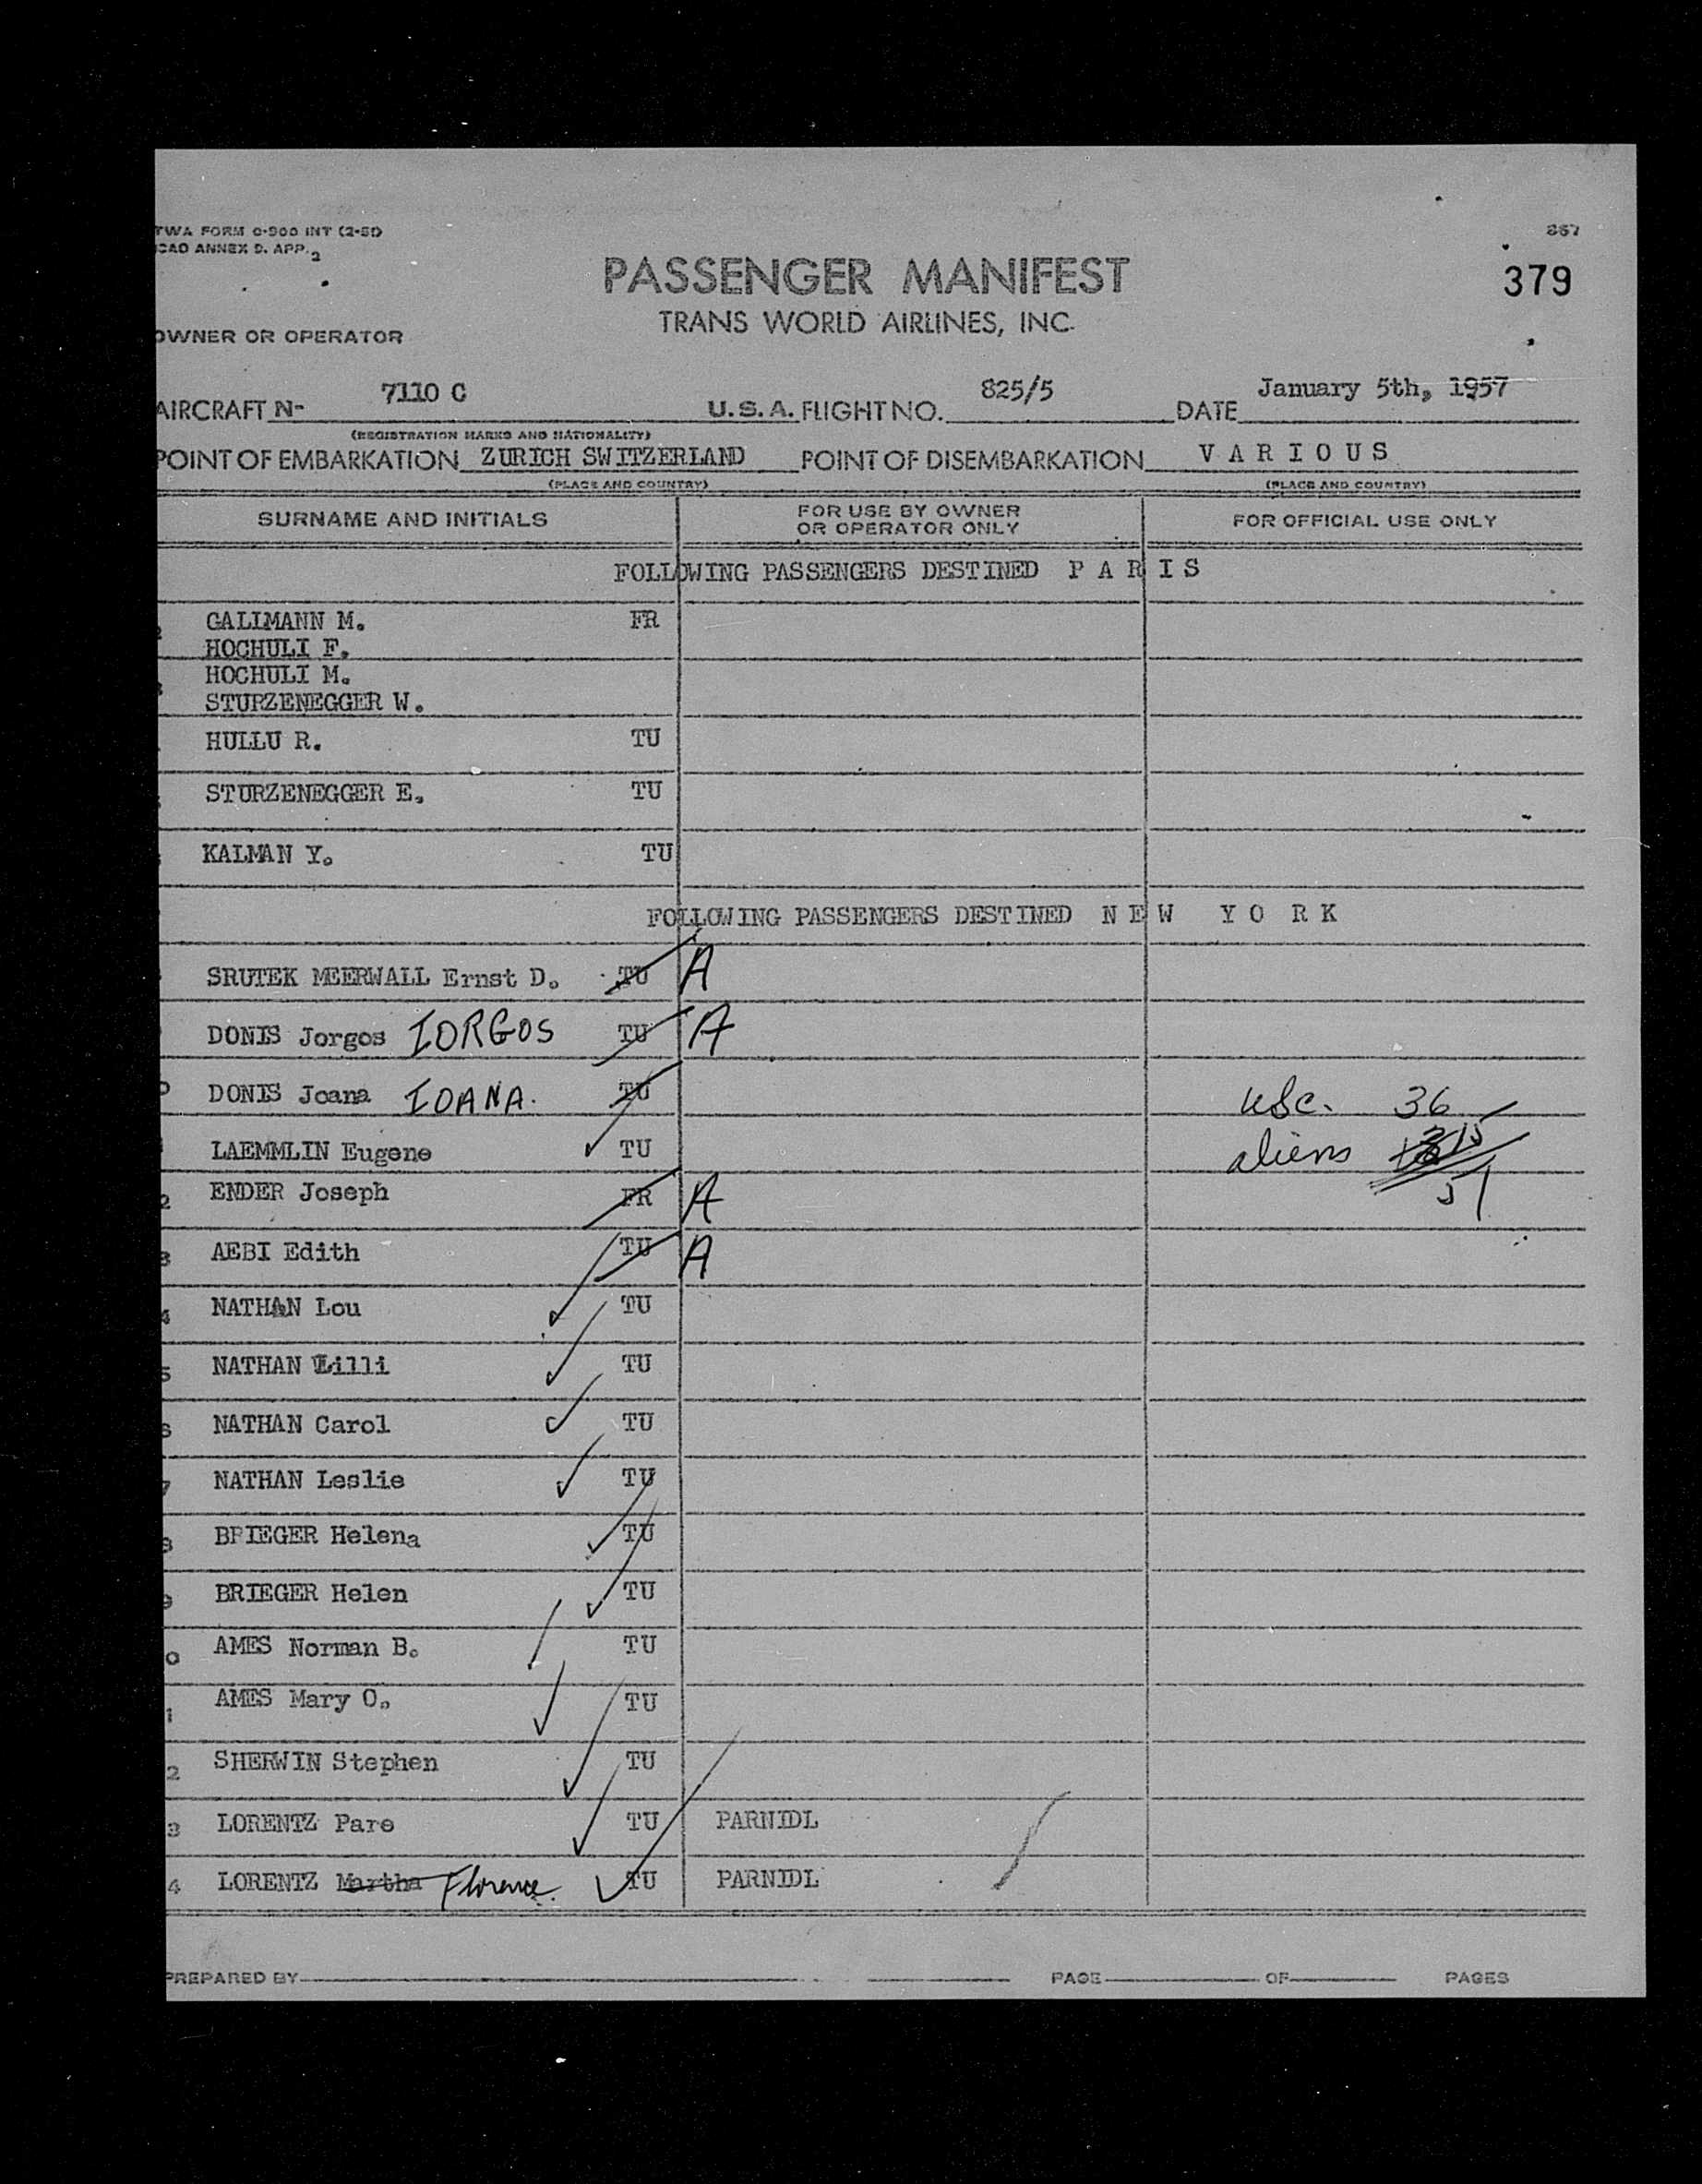 TWA FORM 0-900 INT (2-51)
ICAO ANNEX 9. APP. 2
867
379
PASSENGER MANIFEST
TRANS WORLD AIRLINES, INC.
OWNER OR OPERATOR
AIRCRAFT N- 7110 C U.S.A. FLIGHT NO. 825/5 DATE January 5th, 1957
(REGISTRATION MARKS AND NATIONALITY)
POINT OF EMBARKATION ZURICH SWITZERLAND POINT OF DISEMBARKATION VARIOUS
(PLACE AND COUNTRY) (PLACE AND COUNTRY)
SURNAME AND INITIALS FOR USE BY OWNER OR OPERATOR ONLY FOR OFFICIAL USE ONLY
FOLLOWING PASSENGERS DESTINED PARIS
GALLMANN M. FR
HOCHULI F.
HOCHULI M.
STURZENEGGER W.
HULLU R. TU
STURZENEGGER E. TU
KALMAN Y. TU
FOLLOWING PASSENGERS DESTINED NEW YORK
SRUTEK MEERWALL Ernst D. TU A
DONIS Jorgos IORGOS TU A
DONIS Joana IOANA. TU usc. 36
LAEMMLIN Eugene TU aliens 15
51
2 ENDER Joseph FR A
3 AEBI Edith TU A
4 NATHAN Lou TU
5 NATHAN Lilli TU
6 NATHAN Carol TU
7 NATHAN Leslie TU
8 BRIEGER Helena TU
9 BRIEGER Helen TU
0 AMES Norman B. TU
1 AMES Mary O. TU
2 SHERWIN Stephen TU
3 LORENTZ Pare TU PARNIDL
4 LORENTZ Martha Florence. TU PARNIDL
PREPARED BY PAGE OF PAGES